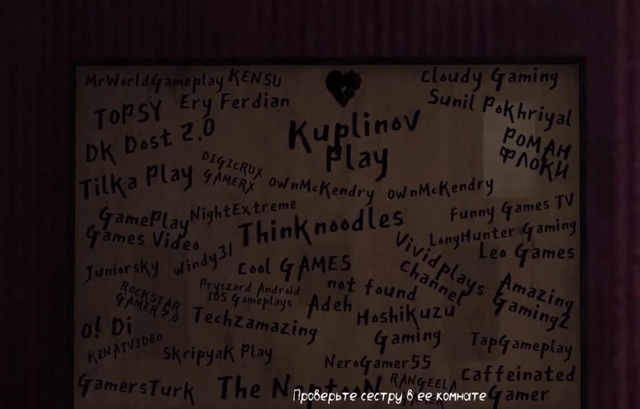 MrWorldGameplay KENSU
Cloudy Gaming
TOPSY Ery Ferdian
Sunil Pokhriyal
DK Dost 2.0
Kuplinov
Play
РОМАН
ФЛОКИ
Tilka Play
DIGICRUX
GAMERX
OwnMcKendry OwnMcKendry
GamePlay
Games Video
NightExtreme
Thinknoodles
Funny Games TV
LongHunter Gaming
Leo Games
Juniorsky
windy31
cool GAMES
Vividplays
channel
Amazing
Gaming2
ROCKSTAR
GAMER 2.0
Pryszard Android
IOS Gameplays
not found
Adeh
Hoshikuzu
O! Di
Techzamazing
Gaming
TapGameplay
KINATVIDEO
SkripyaK Play
NeroGamer55
GamersTurk
The
RANGEELA
caffeinated
Gamer
Проверьте сестру в ее комнате